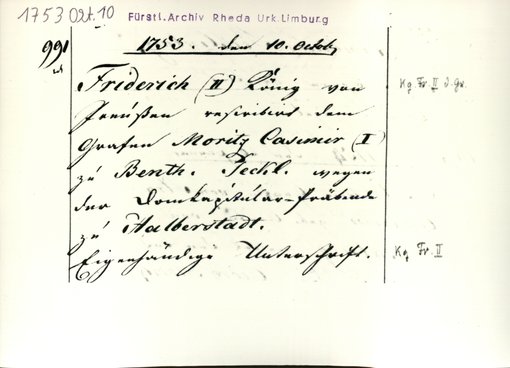 1753 Okt. 10
Fürstl. Archiv Rheda Urk. Limburg
991
1753. den 10. Octob,
Friderich (II) König von
Preüßen rescribirt dem
Grafen Moritz Casimir (I)
zu Benth. Teckl. wegen
der Domkapitular-Präbende
zu Halberstadt.
Eigenhändige Unterschrift.
Kg. Fr. II d. Gr.
Kg Fr. II